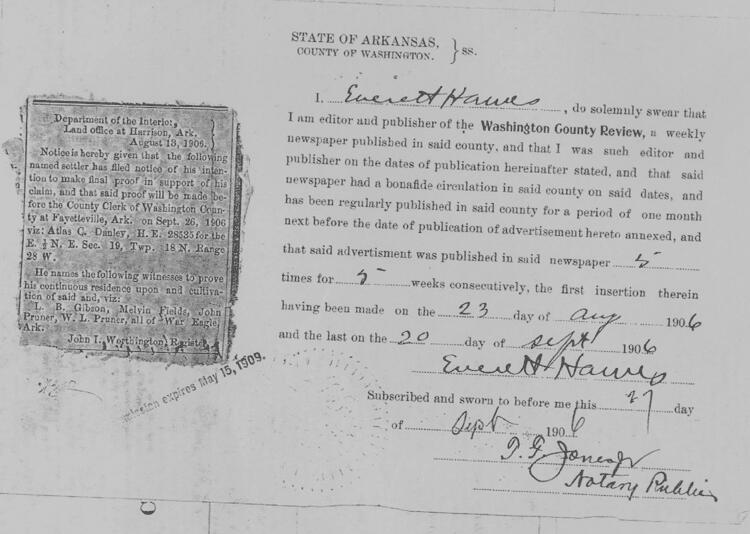 STATE OF ARKANSAS,
COUNTY OF WASHINGTON. } ss.
I. Everett Hawes, do solemnly swear that
I am editor and publisher of the Washington County Review, a weekly
newspaper published in said county, and that I was such editor and
publisher on the dates of publication hereinafter stated, and that said
newspaper had a bonafide circulation in said county on said dates, and
has been regularly published in said county for a period of one month
next before the date of publication of advertisement hereto annexed, and
that said advertisment was published in said newspaper 5
times for 5 weeks consecutively, the first insertion therein
having been made on the 23 day of Aug 1906
and the last on the 20 day of Sept 1906
Everett Hawes
Subscribed and sworn to before me this 27 day
of Sept 1906
T. G. Jones Jr
Notary Public
Department of the Interior,
Land office at Harrison, Ark.
August 13, 1906.
Notice is hereby given that the following
named settler has filed notice of his inten-
tion to make final proof in support of his
claim, and that said proof will be made be-
fore the County Clerk of Washington Coun-
ty at Fayetteville, Ark. on Sept. 26, 1906
viz: Atlas C. Danley, H. E. 28535 for the
E. ½ N. E. Sec. 19, Twp. 18 N. Range
28 W.
He names the following witnesses to prove
his continuous residence upon and cultiva-
tion of said and, viz:
L. B. Gibson, Melvin Fields, John
Pruner, W. L. Pruner, all of War Eagle,
Ark.
John I. Worthington, Register
mission expires May 15, 1909.